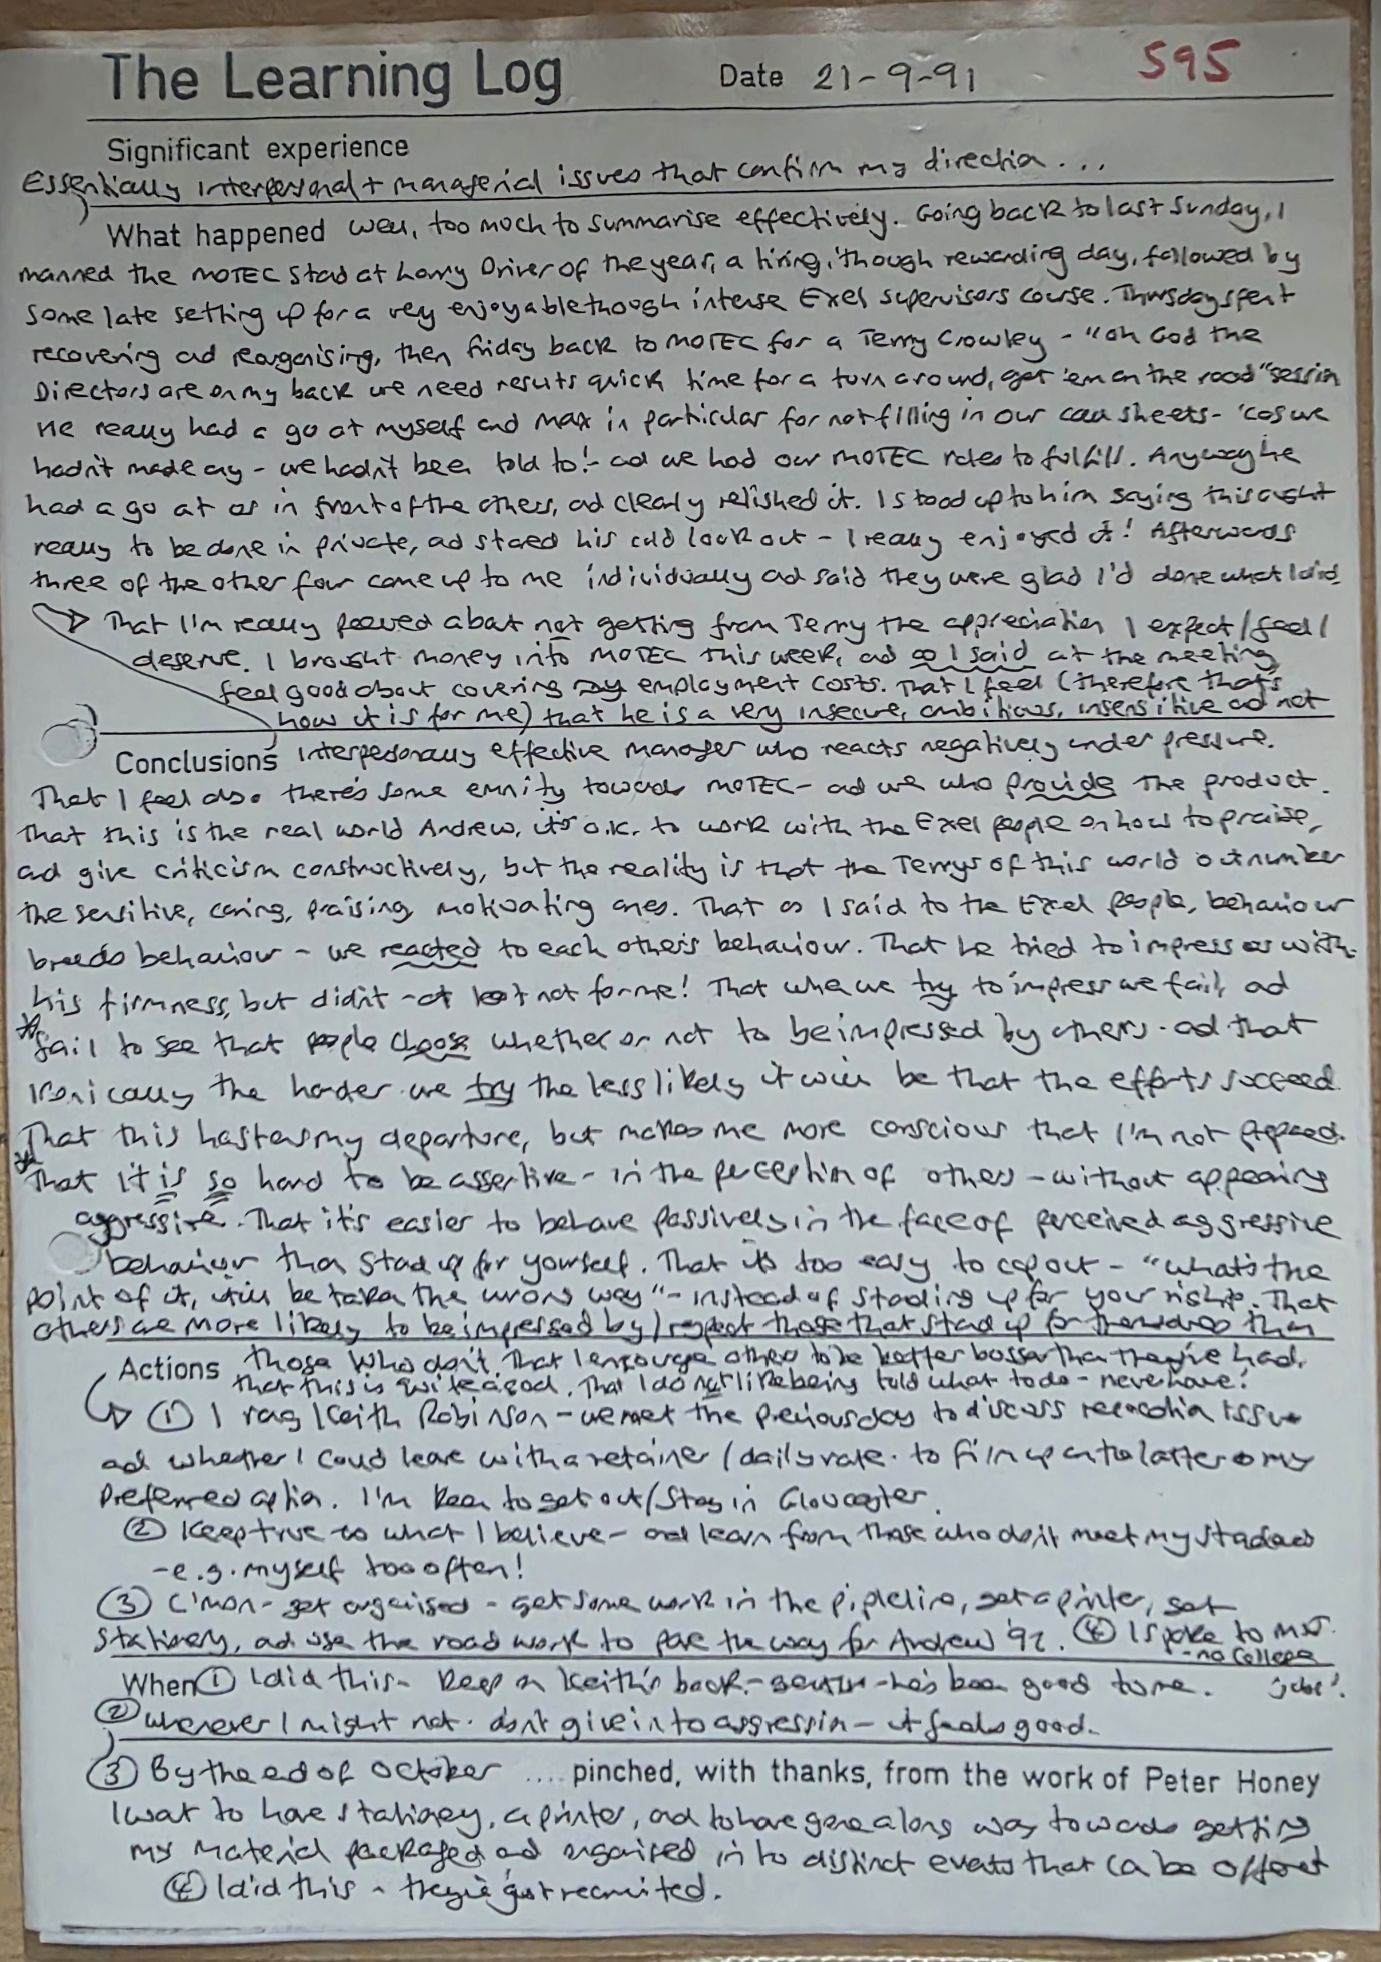 The Learning Log Date 21-9-91 595
Significant experience
Essentially interpersonal + managerial issues that confirm my direction ...
What happened Well, too much to summarise effectively. Going back to last Sunday, I
manned the MOTEC stand at Lorry Driver of the year, a tiring, 'though rewarding day, followed by
some late setting up for a very enjoyable though intense Exel supervisors course. Thursday spent
recovering and reorganising, then Friday back to MOTEC for a Terry Crowley - "oh God the
Directors are on my back we need results quick time for a turn around, get 'em on the road" session
He really had a go at myself and Max in particular for not filling in our call sheets - 'cos we
hadn't made any - we hadn't been told to! - and we had our MOTEC roles to fulfill. Anyway he
had a go at us in front of the others, and clearly relished it. I stood up to him saying this ought
really to be done in private, and stared his cold look out - I really enjoyed it! Afterwards
three of the other four came up to me individually and said they were glad I'd done what I did
That I'm really peeved about not getting from Terry the appreciation I expect/feel I
deserve. I brought money into MOTEC this week, and as I said at the meeting
feel good about covering my employment costs. That I feel (therefore that's
how it is for me) that he is a very insecure, ambitious, insensitive and not
Conclusions interpersonally effective manager who reacts negatively under pressure.
That I feel also there's some enmity towards MOTEC - and we who provide the product.
That this is the real world Andrew, it's o.k. to work with the Exel people on how to praise,
and give criticism constructively, but the reality is that the Terrys of this world outnumber
the sensitive, caring, praising, motivating ones. That as I said to the Exel people, behaviour
breeds behaviour - we reacted to each others behaviour. That he tried to impress us with
his firmness, but didn't - at least not for me! That when we try to impress we fail, and
* fail to see that people choose whether or not to be impressed by others - and that
ironically the harder we try the less likely it will be that the efforts succeed.
That this hastens my departure, but makes me more conscious that I'm not prepared.
* That it is so hard to be assertive - in the perception of others - without appearing
aggressive. That it's easier to behave passively in the face of perceived aggressive
behaviour than stand up for yourself. That it's too easy to cop out - "what's the
point of it, it'll be taken the wrong way" - instead of standing up for your rights. That
others are more likely to be impressed by/respect those that stand up for themselves than
Actions those who don't. That I encourage others to be better bosses than they've had,
that this is quite a god. That I do not like being told what to do - never have!
① I rang Keith Robinson - we met the previous day to discuss relocation issue
and whether I could leave with a retainer / daily rate to film up on the latter my
preferred option. I'm keen to get out/stay in Gloucester.
② Keep true to what I believe - and learn from those who don't meet my standards
- e.g. myself too often!
③ C'mon - get organised - get some work in the pipeline, get a printer, get
stationery, and use the road work to pave the way for Andrew '92. ④ I spoke to MSF
- no college
When ① I did this - keep on Keith's back - he's been good to me. jobs!
② whenever I might not. don't give in to aggression - it feels good.
③ By the end of October .... pinched, with thanks, from the work of Peter Honey
I want to have stationery, a printer, and to have gone a long way towards getting
my material packaged and organised in to distinct events that can be offered
④ I did this - they've just recruited.